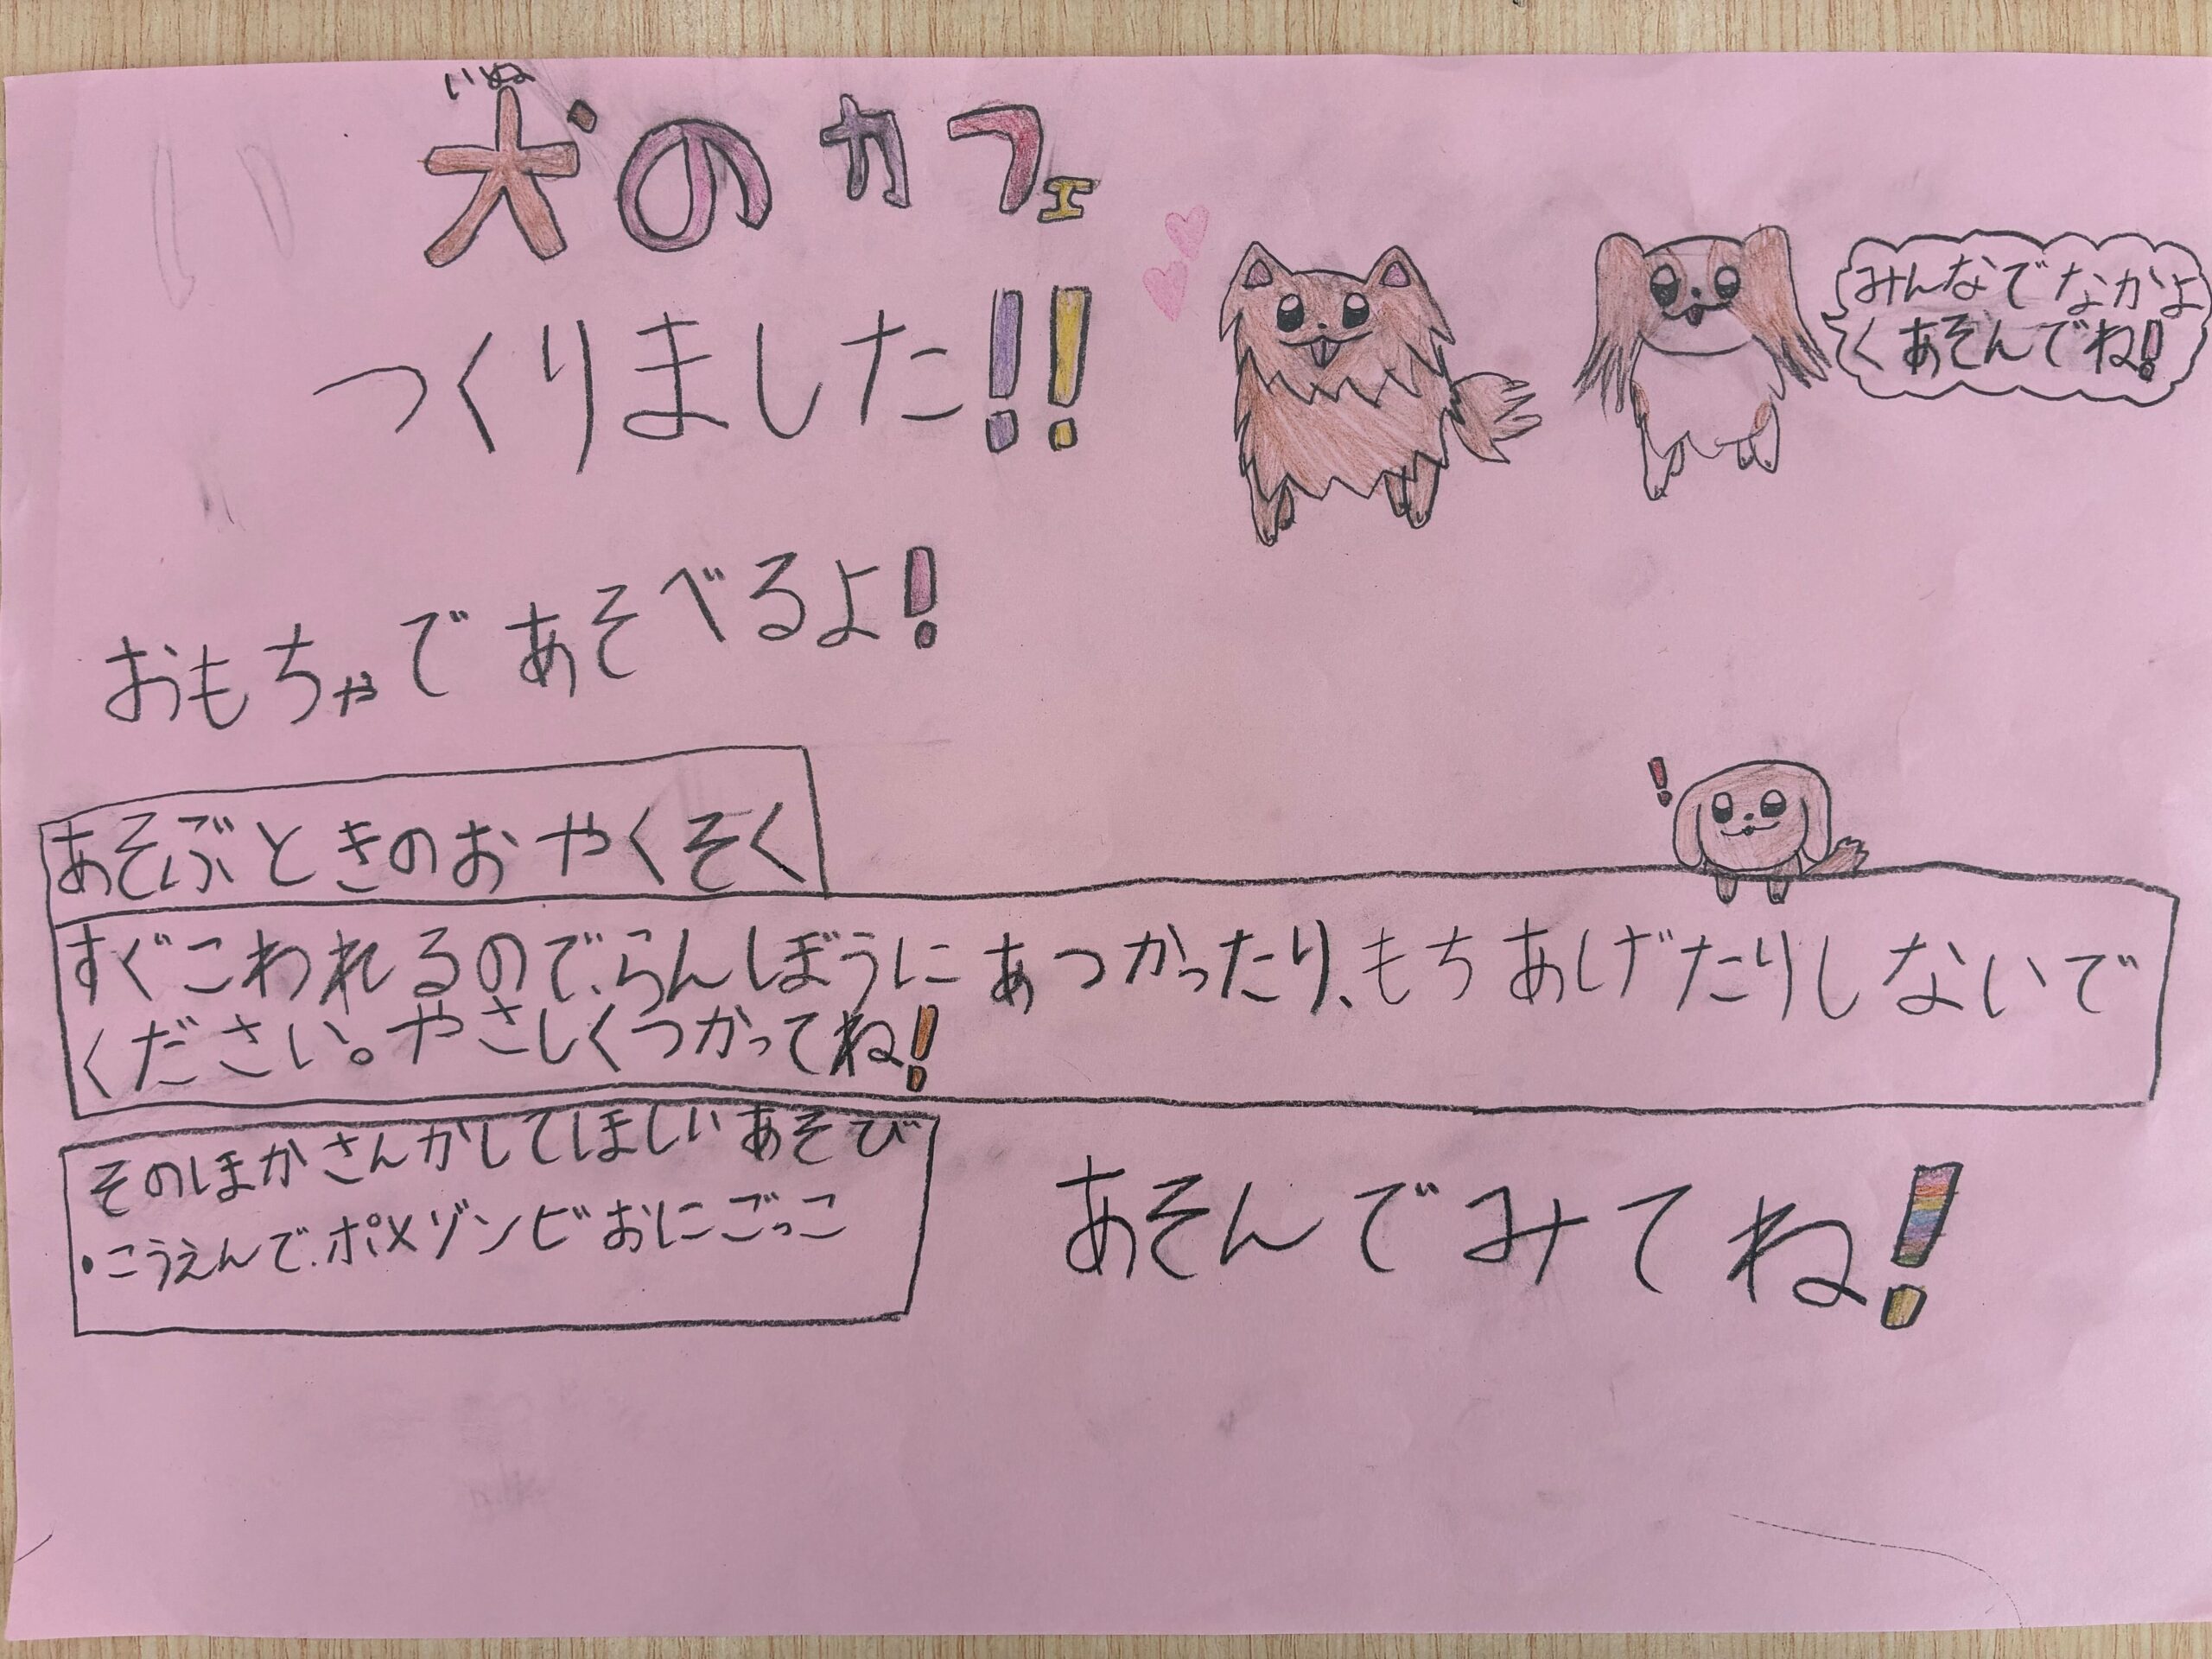 いぬ
犬のカフェ
つくりました!!
みんなでなかよ
くあそんでね!
おもちゃであそべるよ!
!
あそぶときのおやくそく
すぐこわれるので、らんぼうにあつかったり、もちあげたりしないで
ください。やさしくつかってね!
そのほかさんかしてほしいあそび
・こうえんで、ポメゾンビおにごっこ
あそんでみてね!